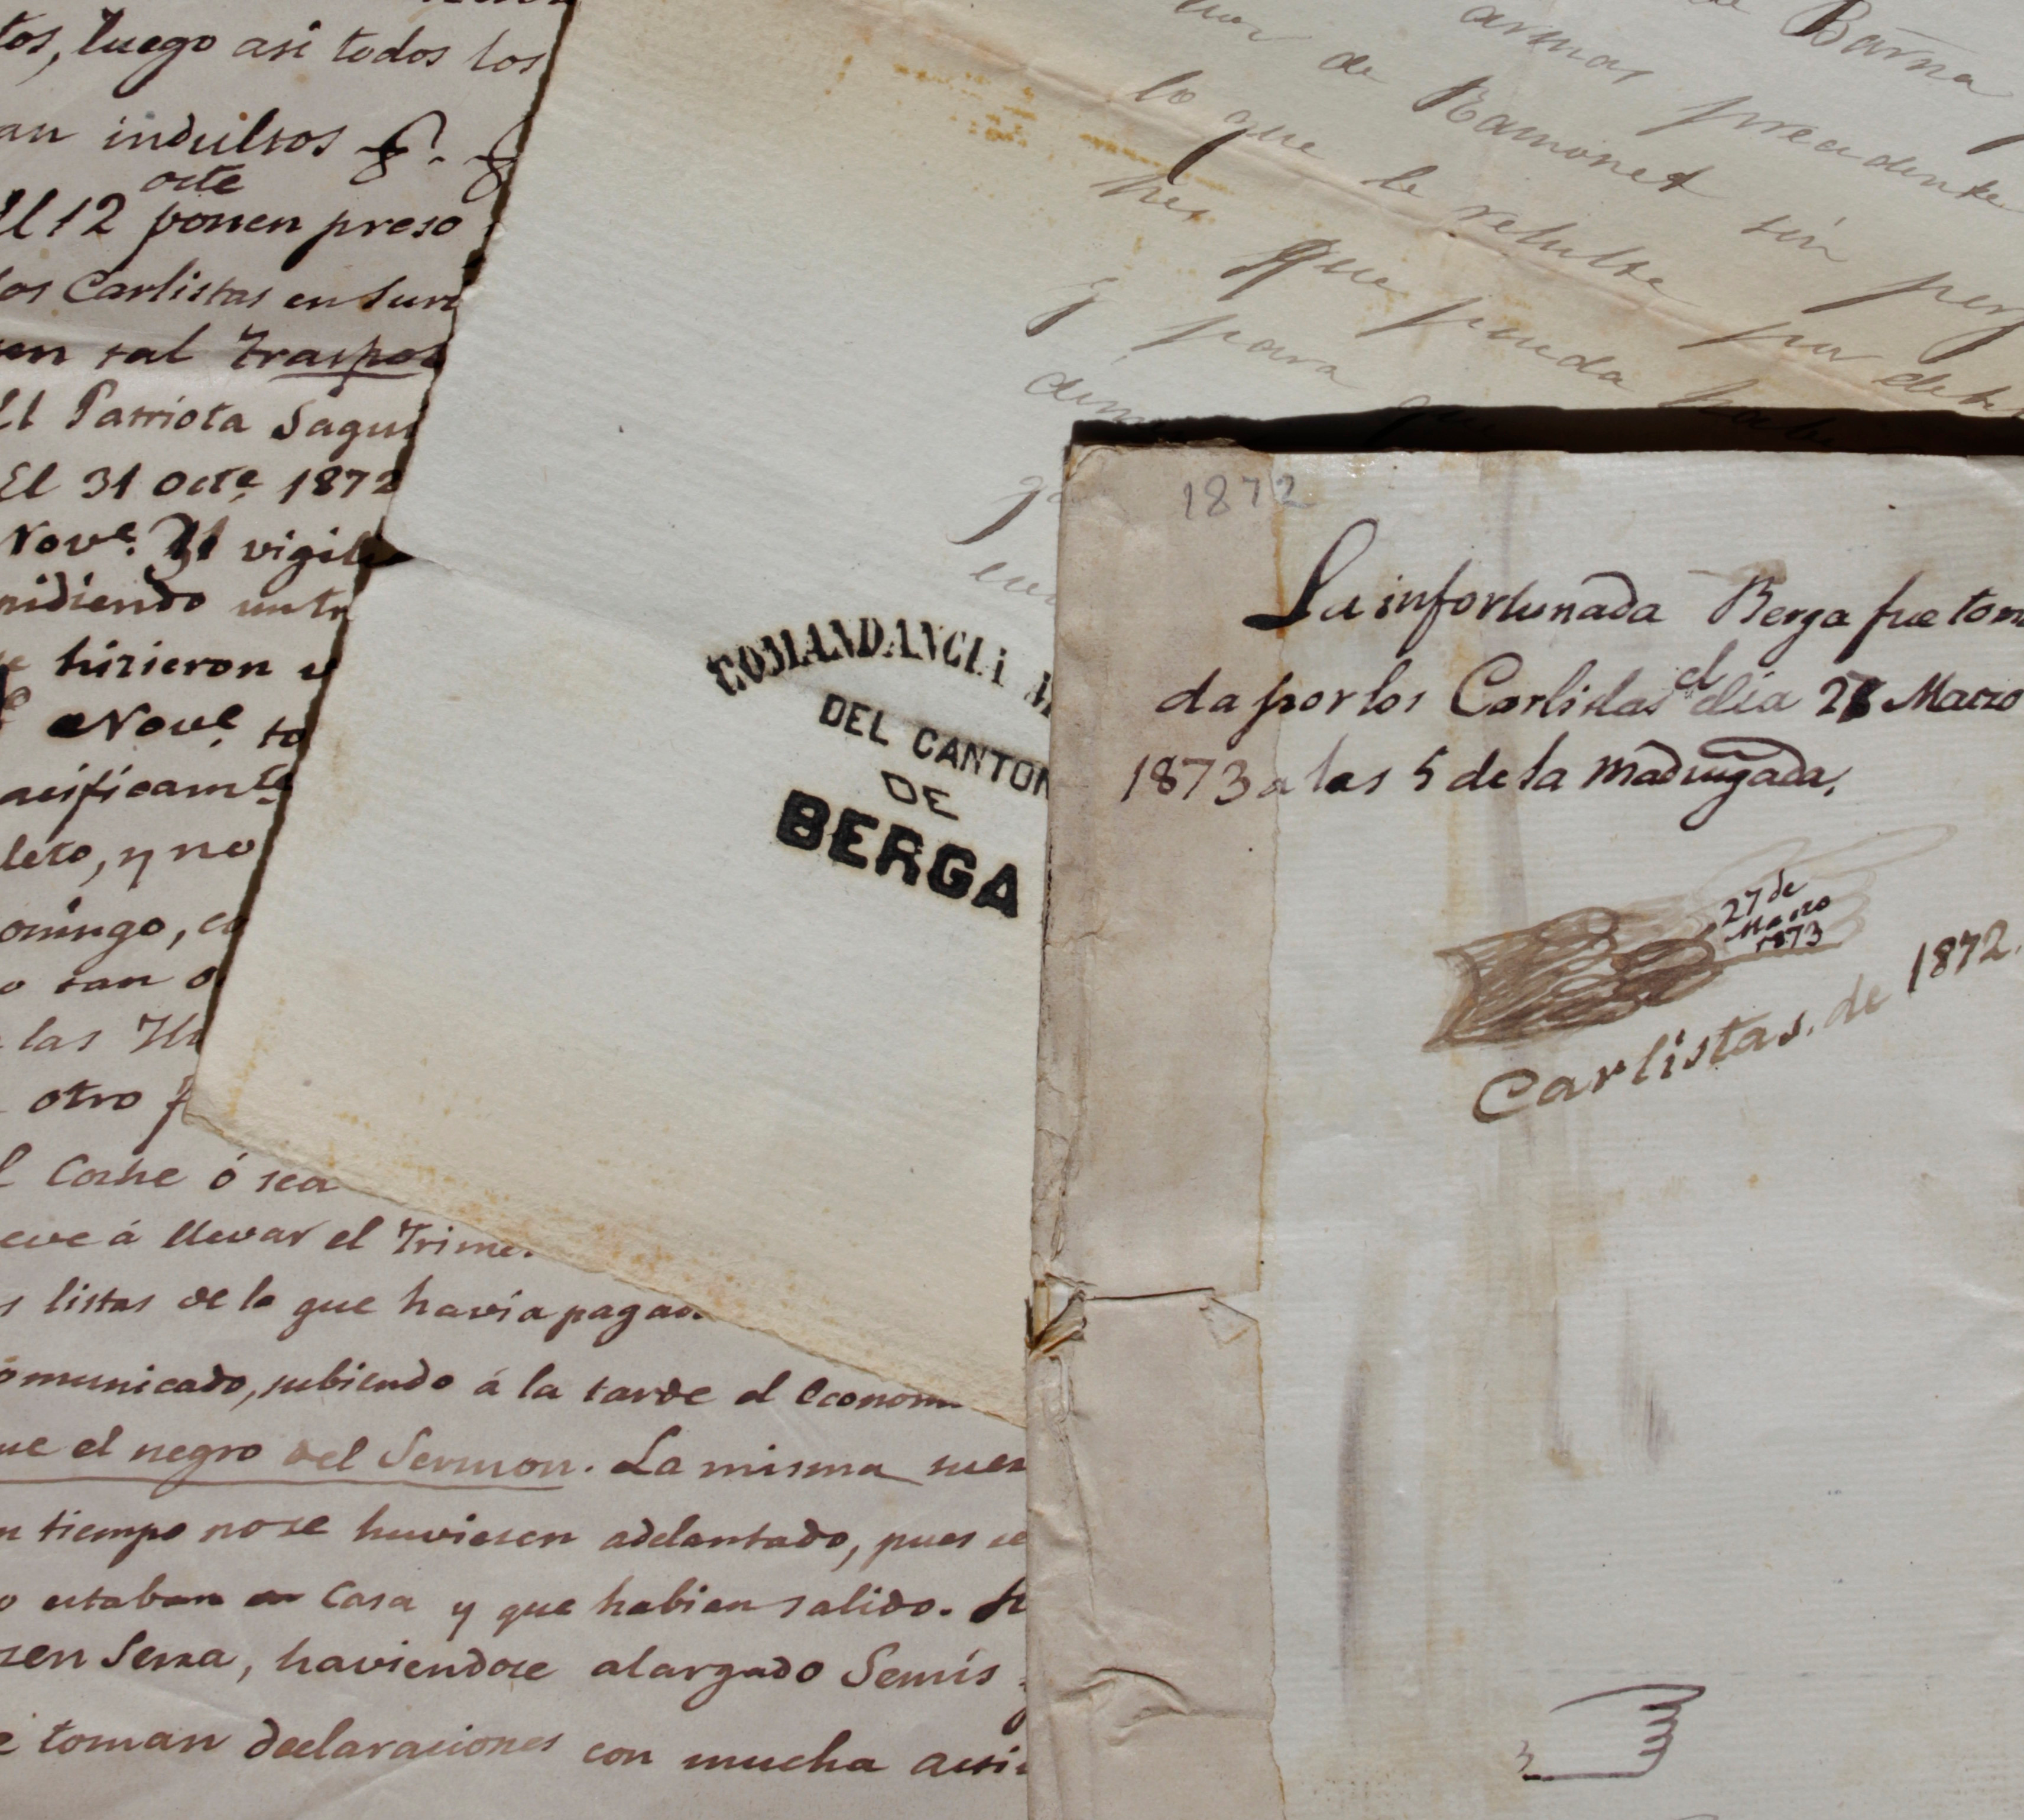 tos, luego asi todos los
an indultos
octe
El 12 ponen preso
los Carlistas en Suri
en sal traspas
El Patriota Sagun
El 31 Octe. 1872
Nove. 31 vigil
midiendo un tr
e hizieron v
Nove. to
acificamte
leto, y no
omingo, co
o tan o
las Ho
otro f
l Coche ó sea
eve á llevar el Trime
s listas de lo que havia pagad
omunicado, subiendo á la tarde el Econom
ue el negro del Sermon. La misma suer
n tiempo no se huviesen adelantado, pues se
o estaban en Casa y que habian salido.
sen Serra, haviendose alargado Semis
e toman declaraciones con mucha acti
de Barna
armas precedente
de Ramonet sin perj
lo que le resulte por
nes que pueda
y para que
COMANDANCIA M
DEL CANTON
DE
BERGA
1872
La infortunada Berga fue toma
da por los Carlistas el dia 27 Marzo
1873 a las 5 de la madrugada.
27 de
Marzo
1873
Carlistas. de 1872.